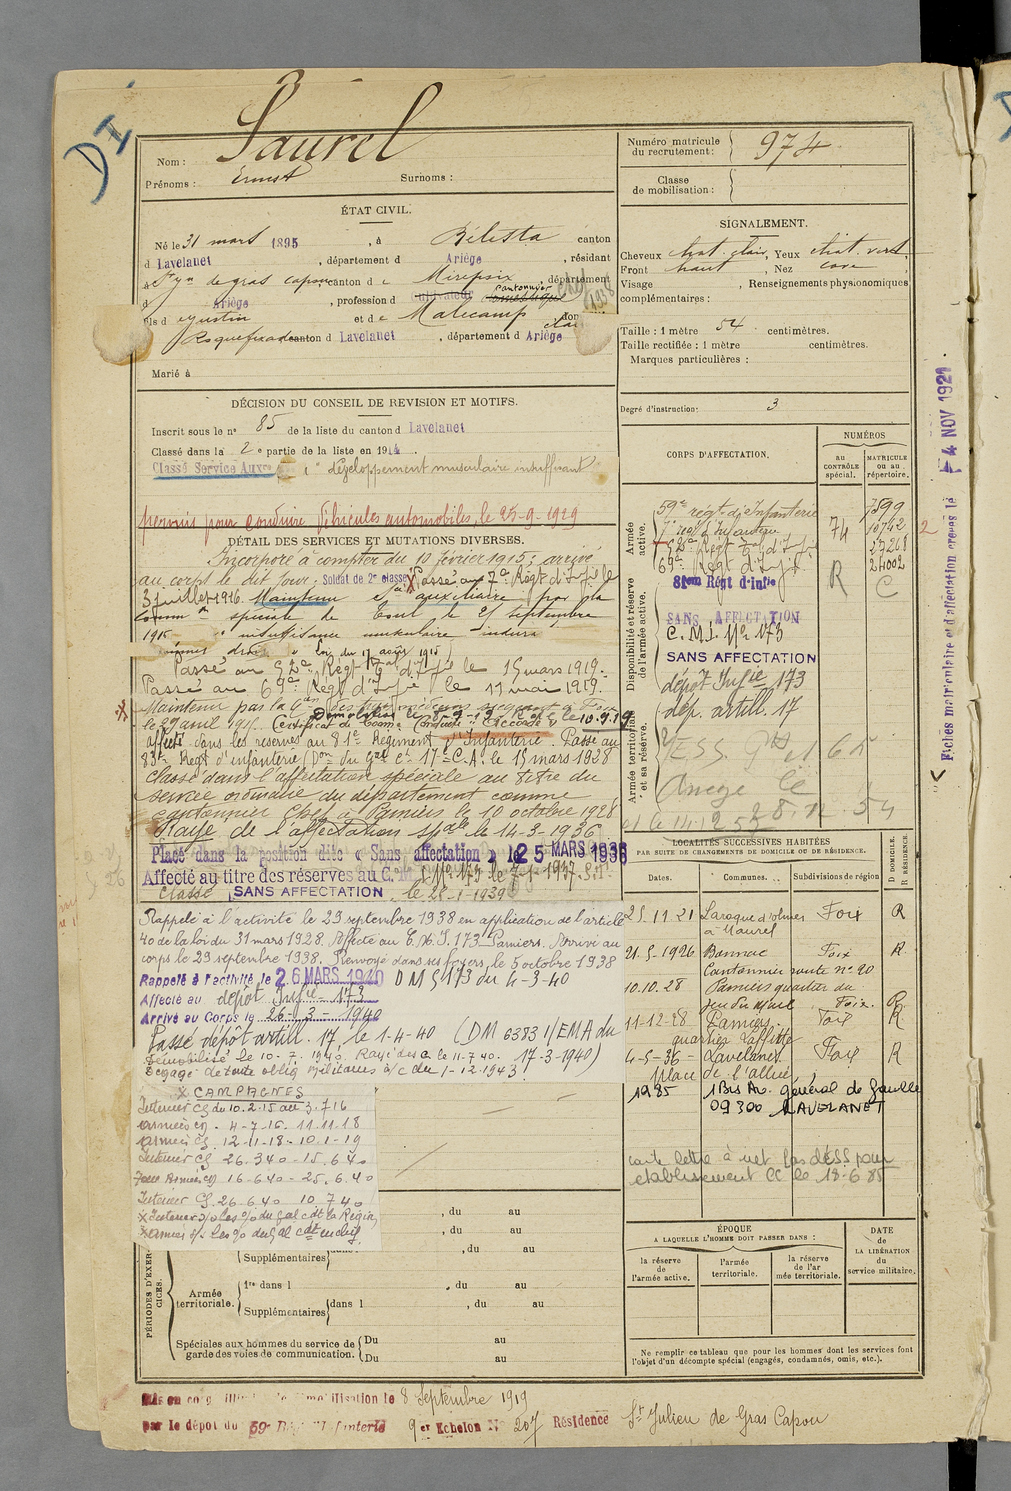 D I
Nom : Saurel
Prénoms : Ernest Surnoms :
ÉTAT CIVIL.
Né le 31 mars 1895, à Bélesta canton
d Lavelanet, département d Ariège, résidant
à St Jn de gras capou canton d e Mirepoix département
d Ariège, profession d cultivateur domestique cantonnier chef 1938
fils d et de Malecamp dom
Roquefixade canton d Lavelanet, département d Ariège
Marié à
DÉCISION DU CONSEIL DE REVISION ET MOTIFS.
Inscrit sous le n° 85 de la liste du canton d Lavelanet
Classé dans la 2e partie de la liste en 1914.
Classé Service Auxre développement musculaire insuffisant
permis pour conduire Véhicules automobiles, le 25-9-1929
DÉTAIL DES SERVICES ET MUTATIONS DIVERSES.
Incorporé à compter du 10 février 1915; arrivé
au corps le dit jour; Soldat de 2e classe Passé au 7e Régt d'Infie le
3 juillet 1916. Maintenu Sce auxiliaire par la
Common spéciale de Toul le 25 septembre
1915 insuffisance musculaire
loi du 17 août 1915)
Passé au 52e Régt d'Infie le 15 mars 1919.
Passé au 69e Régt d'Infie le 11 mai 1919.
Maintenu par la Con des médecins siégeant à Foix
le 29 avril Démobilisé le 8-9-19 Certificat de bonne Conduite Accordé le 10.9.19
affecté dans les réserves au 81e Régiment d'Infanterie. Passé au
83e Régt d'infanterie (Don du Gal Ct 17e C.A. le 15 mars 1928
Classé dans l'affectation spéciale au titre du
service ordinaire du département comme
cantonnier Chef à Pamiers le 10 octobre 1928
Rayé de l'affectation spale le 14-3-1936
Placé dans la position dite « Sans affectation » le 25 MARS 1936
Affecté au titre des réserves au C.M.I. N° 173 le 7-1-1937
Classé SANS AFFECTATION le 28-1-1939
Rappelé à l'activité le 29 septembre 1938 en application de l'article
40 de la loi du 31 mars 1928. Affecté au C.M.I. 173 Pamiers. Arrivé au
corps le 29 septembre 1938. Renvoyé dans ses foyers, le 5 octobre 1938
Rappelé à l'activité le 26 MARS 1940 DMI 173 du 4-3-40
Affecté au dépôt Infie 173
Arrivé au Corps le 26-3-1940
Passé dépôt artill. 17, le 1-4-40 (DM 6383 1/EMA du
17-3-1940)
Démobilisé le 10-7-1940. Rayé des c. le 11-7-40.
Dégagé de toute oblig militaires à/c du 1-12-1943
CAMPAGNES
Intérieur CS du 10.2.15 au 3.7.16
Armées CD - 4-7-16. 11.11.18
Armées CS 12-11-18 - 10-1-19
Intérieur CS 26.3.40 - 15.6.40
Zone Armées CD 16-6-40 - 25.6.40
Intérieur CS 26.6.40 10.7.40
Intérieur s/ les o/ du gal cdt la Région
Armées s/ les o/ du Gal cdt en chef.
, du au
, du au
, du au
Supplémentaires
PÉRIODES D'EXERCICES.
Armée territoriale.
1re dans l , du au
Supplémentaires dans l , du au
Spéciales aux hommes du service de garde des voies de communication.
Du au
Du au
Numéro matricule du recrutement : 974
Classe de mobilisation :
SIGNALEMENT.
Cheveux chat. clair, Yeux chat. verd.
Front haut, Nez cave
Visage , Renseignements physionomiques
complémentaires :
Taille : 1 mètre 54 centimètres.
Taille rectifiée : 1 mètre centimètres.
Marques particulières :
Degré d'instruction: 3
CORPS D'AFFECTATION.
NUMÉROS
au CONTRÔLE spécial.
MATRICULE ou au répertoire.
Armée active.
59e régt d'Infanterie 7599
7e régt d'Infanterie 74 10742 2
52e Régt d'Infie 27268
69e Régt d'Infie 21002
Disponibilité et réserve de l'armée active.
81em Régt d'infie R C
SANS AFFECTATION
C.M.I. N° 173
SANS AFFECTATION
dépôt Infie 173
dép. artill. 17
Armée territoriale et sa réserve.
Ariège
LOCALITÉS SUCCESSIVES HABITÉES
PAR SUITE DE CHANGEMENTS DE DOMICILE OU DE RÉSIDENCE.
Dates. Communes. Subdivisions de région D. DOMICILE. R. RÉSIDENCE.
25.11.21 Laroque d'olmes Foix R
à Maurel
21.5.1926 Bonnac Foix R.
Cantonnier route n° 20
10.10.28 Pamiers quartier du
Jeu du Mail Foix. R
11-12-28 Pamiers Foix R
quartier Laffitte
4-5-36 - Lavelanet Foix R
Place de l'allée
1985 1 Bis Av. général de Gaulle
09300 LAVELANET
carte lettre à net pas d'ESS pour
établissement CC le 18-6-85
ÉPOQUE
A LAQUELLE L'HOMME DOIT PASSER DANS :
la réserve de l'armée active.
l'armée territoriale.
la réserve de l'armée territoriale.
DATE de LA LIBÉRATION du service militaire.
Ne remplir ce tableau que pour les hommes dont les services font
l'objet d'un décompte spécial (engagés, condamnés, omis, etc.).
Fiches matriculaire et d'affectation creees le 4 NOV 1921.
Mis en congé illimité de démobilisation le 8 Septembre 1919
par le dépôt du 59e Régt d'Infanterie 9er Echelon N° 207 Résidence St Julien de Gras Capou